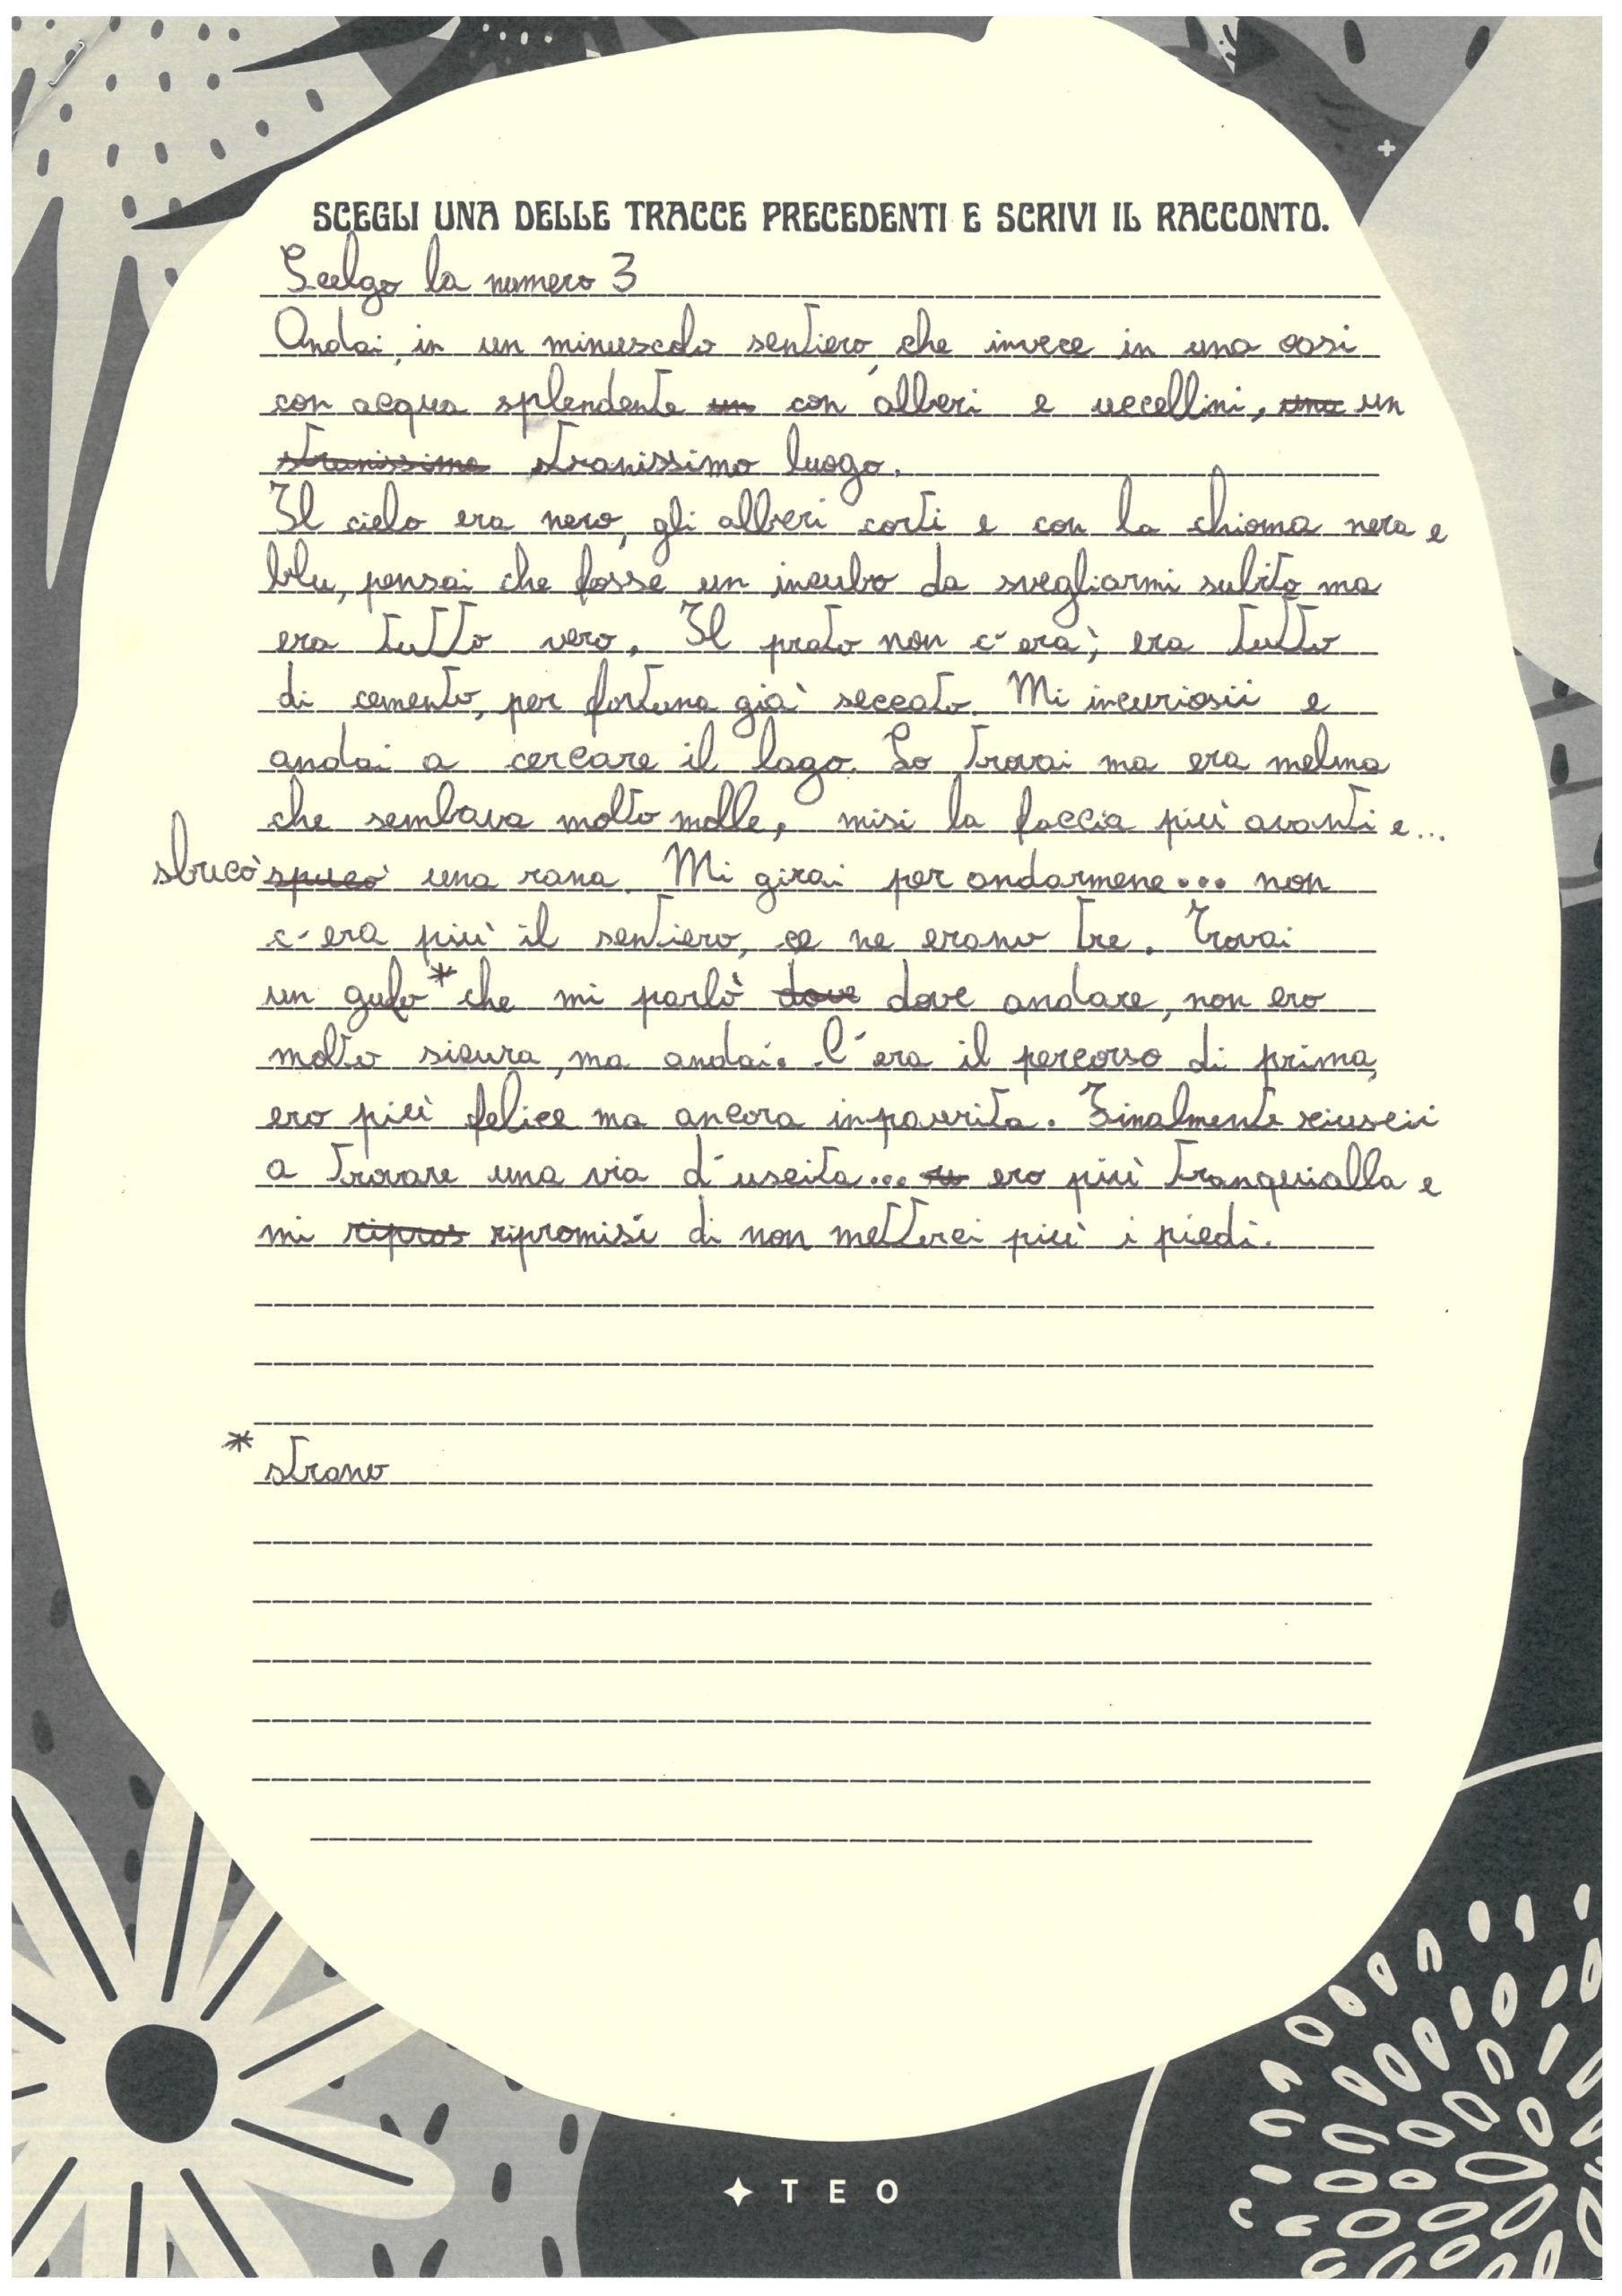 SCEGLI UNA DELLE TRACCE PRECEDENTI E SCRIVI IL RACCONTO.
Scelgo la numero 3
Andai, in un minuscolo sentiero, che invece in una oasi
con acqua splendente un con alberi e uccellini, una un
stranissima stranissimo luogo.
Il cielo era nero, gli alberi corti e con la chioma nera e
blu, pensai che fosse un incubo da svegliarmi subito ma
era tutto vero. Il prato non c'era; era tutto
di cemento, per fortuna già seccato. Mi incuriosii e
andai a cercare il lago. Lo trovai ma era melma
che sembava molto molle, misi la faccia più avanti e...
sbucò spucò una rana. Mi girai per andarmene... non
c'era più il sentiero, ce ne erano tre. Trovai
un gufo* che mi parlò dove dove andare, non ero
molto sicura, ma andai. C'era il percorso di prima,
ero più felice ma ancora inpaurita. Finalmente riuscii
a trovare una via d'uscita... ero più tranquialla e
mi ripros ripromisi di non metterci più i piedi.
* strano
TEO